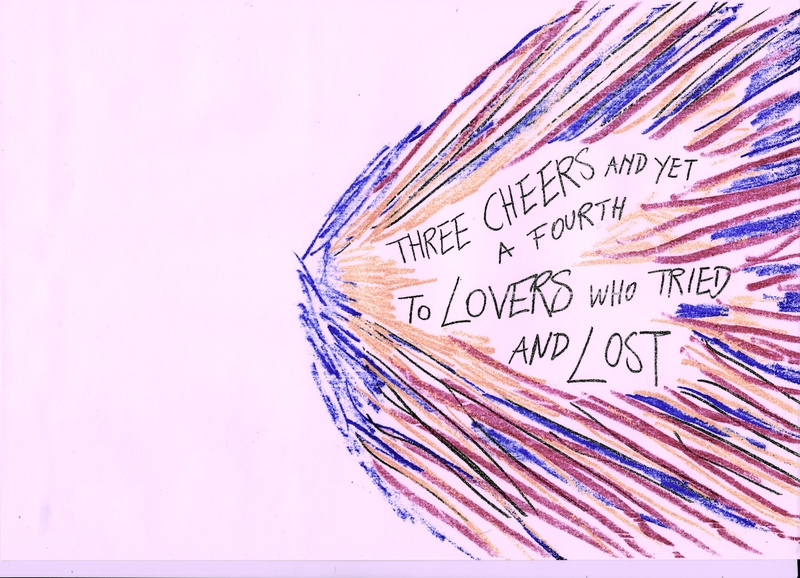 THREE CHEERS AND YET
A FOURTH
TO LOVERS WHO TRIED
AND LOST